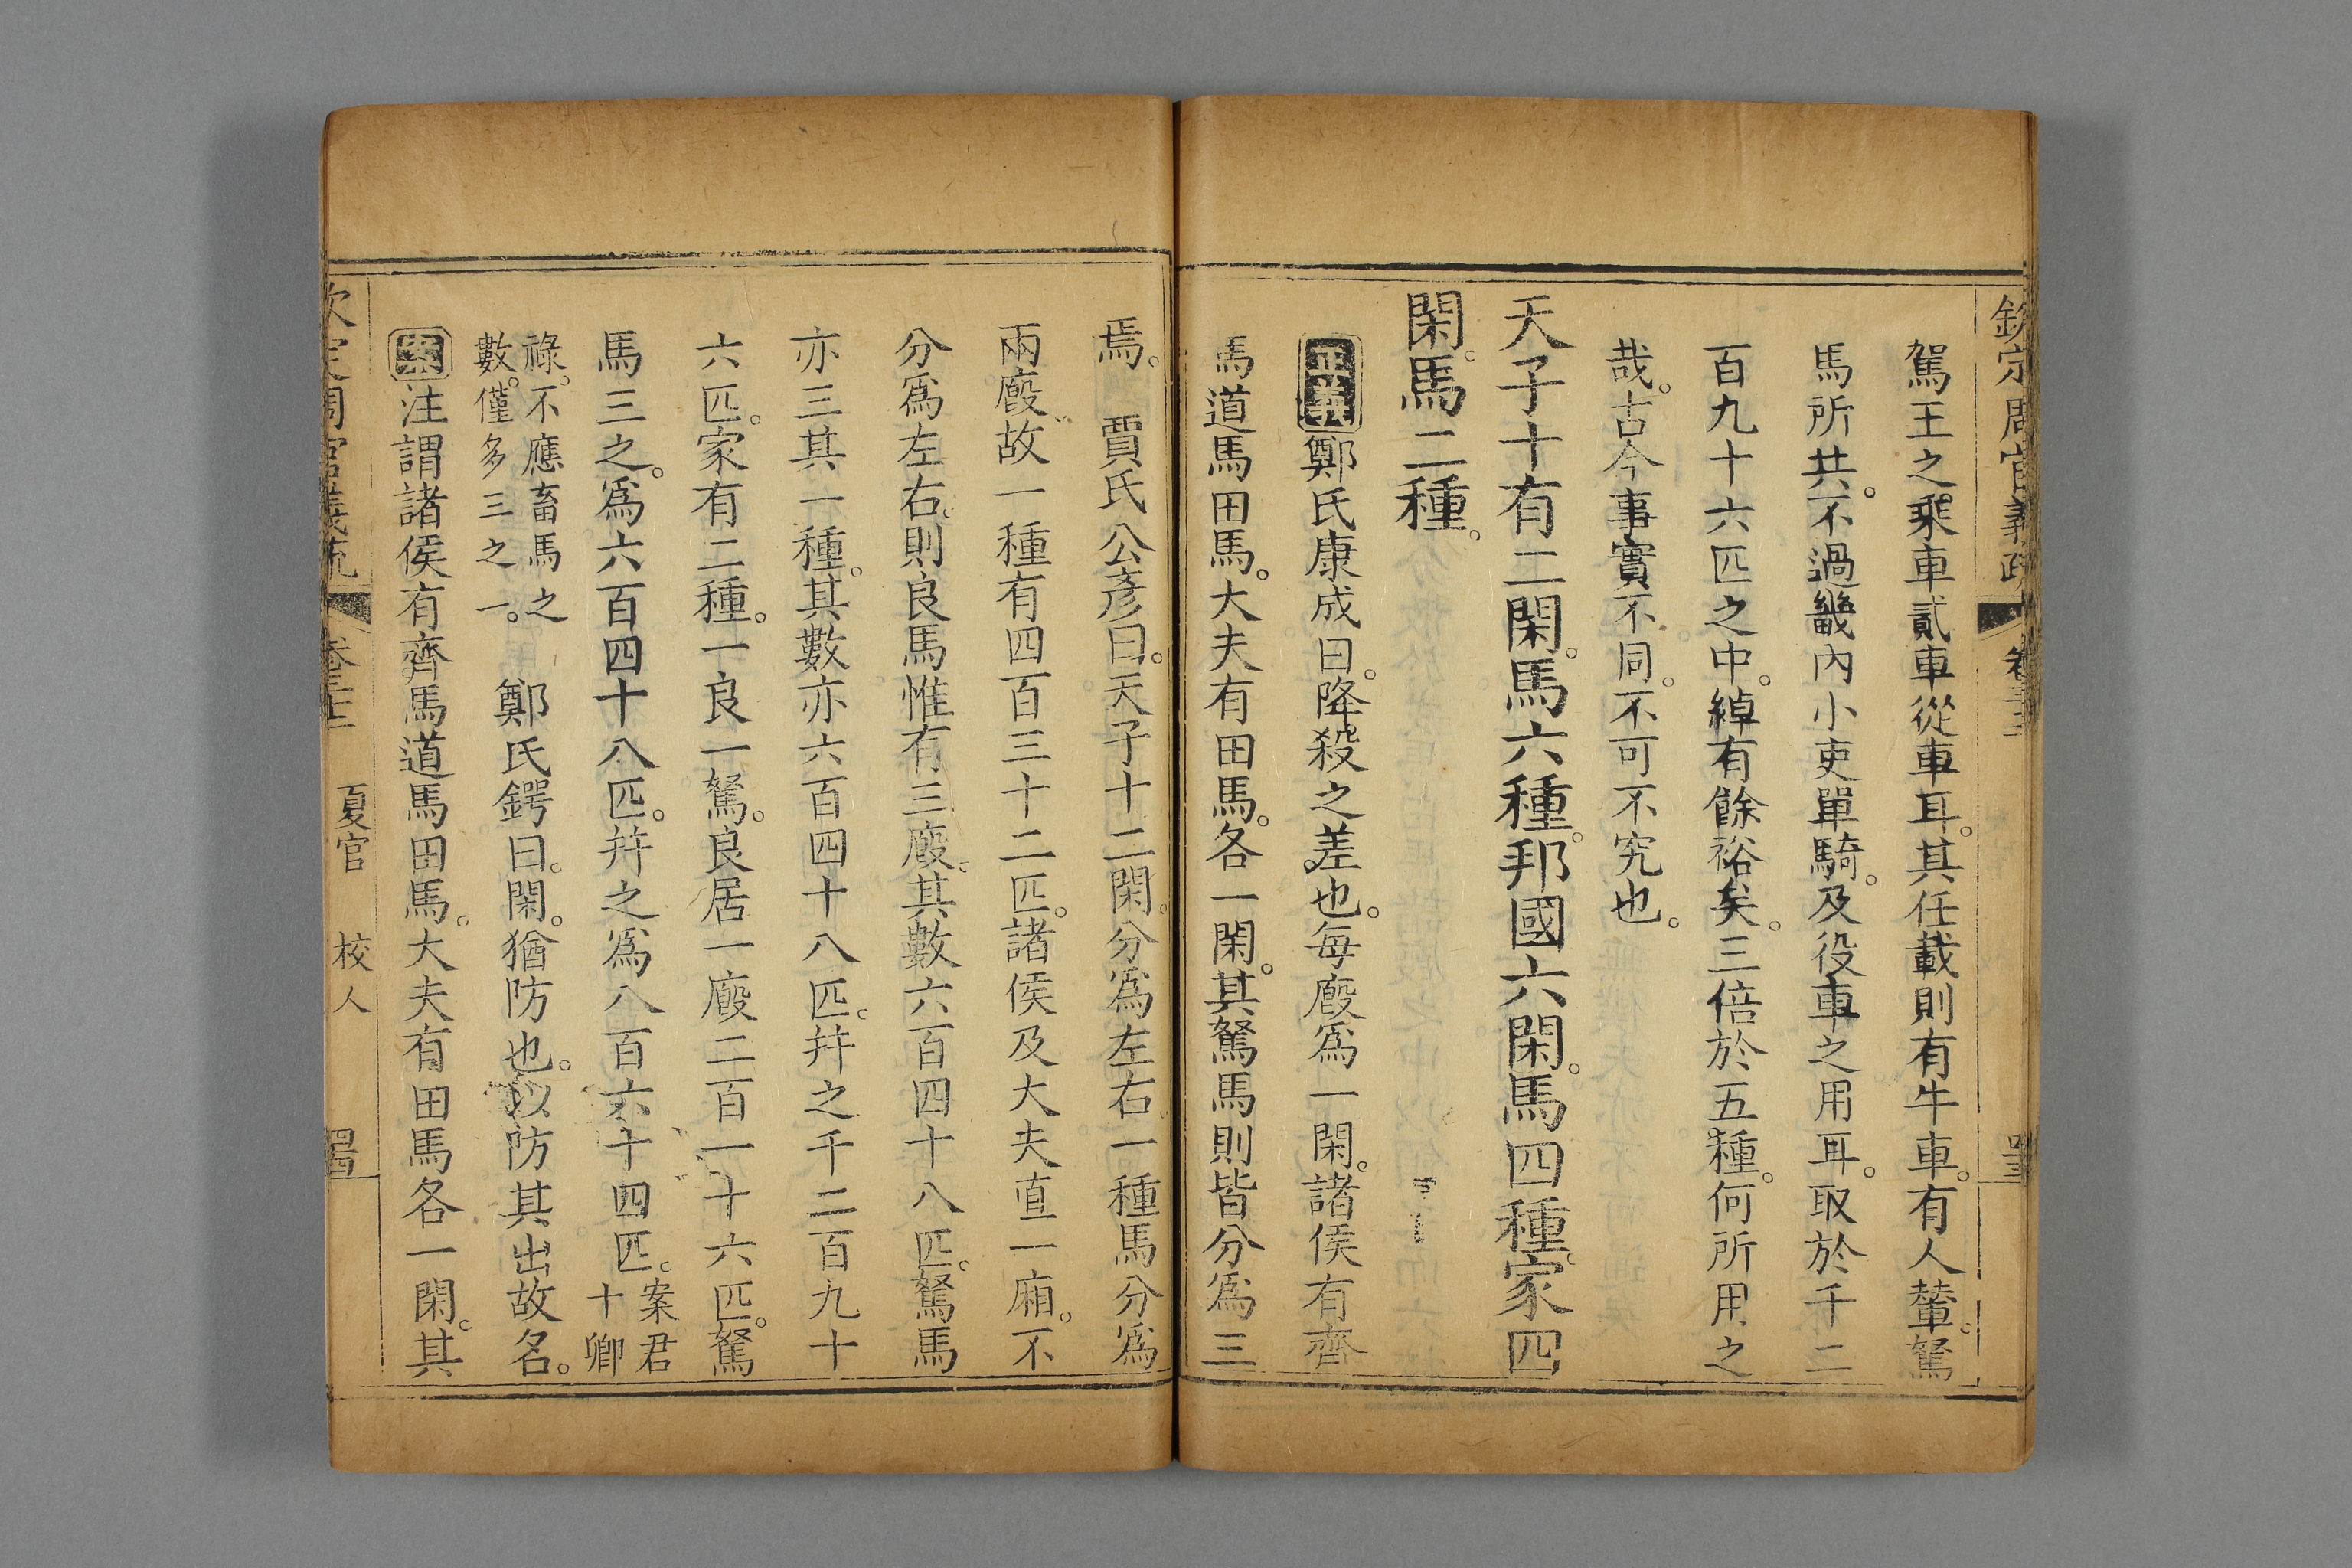 欽定周官義疏 卷三十三
駕王之乘車貳車從車耳。其任載則有牛車。有人輦。駑
馬所共。不過畿內小吏單騎。及役車之用耳。取於千二
百九十六匹之中。綽有餘裕矣。三倍於五種。何所用之
哉。古今事實不同。不可不究也。
天子十有二閑。馬六種。邦國六閑。馬四種。家四
閑。馬二種。
正義鄭氏康成曰。降殺之差也。每廄爲一閑。諸侯有齊
馬道馬田馬。大夫有田馬。各一閑。其駑馬則皆分爲三
焉。 賈氏公彥曰。天子十二閑。分爲左右。一種馬分爲
兩廄。故一種有四百三十二匹。諸侯及大夫直一廂。不
分爲左右。則良馬惟有三廄。其數六百四十八匹。駑馬
亦三其一種。其數亦六百四十八匹。幷之千二百九十
六匹。家有二種。一良一駑。良居一廄二百一十六匹。駑
馬三之。爲六百四十八匹。幷之爲八百六十四匹。案君十卿
祿。不應畜馬之數。僅多三之一。 鄭氏鍔曰。閑。猶防也。以防其出故名。
案注謂諸侯有齊馬道馬田馬。大夫有田馬各一閑。其
欽定周官義疏 卷三十三 夏官 校人